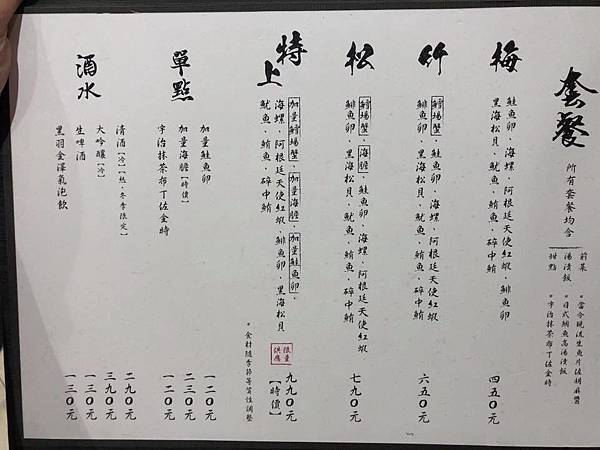 套餐
所有套餐均含
前菜 *當令現流生魚片佐胡麻醬
湯漬飯 *日式鯛魚高湯漬飯
甜點 *宇治抹茶布丁佐金時
梅
鮭魚卵、海螺、阿根廷天使紅蝦、鯡魚卵、
黑海松貝、魷魚、鮪魚、碎中鮪
四五０元
竹
鱈場蟹、鮭魚卵、海螺、阿根廷天使紅蝦
鯡魚卵、黑海松貝、魷魚、鮪魚、碎中鮪
六五０元
松
鱈場蟹、海膽、鮭魚卵、海螺、阿根廷天使紅蝦
鯡魚卵、黑海松貝、魷魚、鮪魚、碎中鮪
七九０元
特上
加量鱈場蟹、加量海膽、加量鮭魚卵、
海螺、阿根廷天使紅蝦、鯡魚卵、黑海松貝
魷魚、鮪魚、碎中鮪
限量供應
九九０元
【時價】
*食材隨季節等質性調整
單點
加量鮭魚卵 一二０元
加量海膽【時價】 二三０元
宇治抹茶布丁佐金時 一二０元
酒水
清酒【冷】【熱，冬季限定】 二九０元
大吟釀【冷】 三九０元
生啤酒 一三０元
黑羽金澤氣泡飲 一三０元